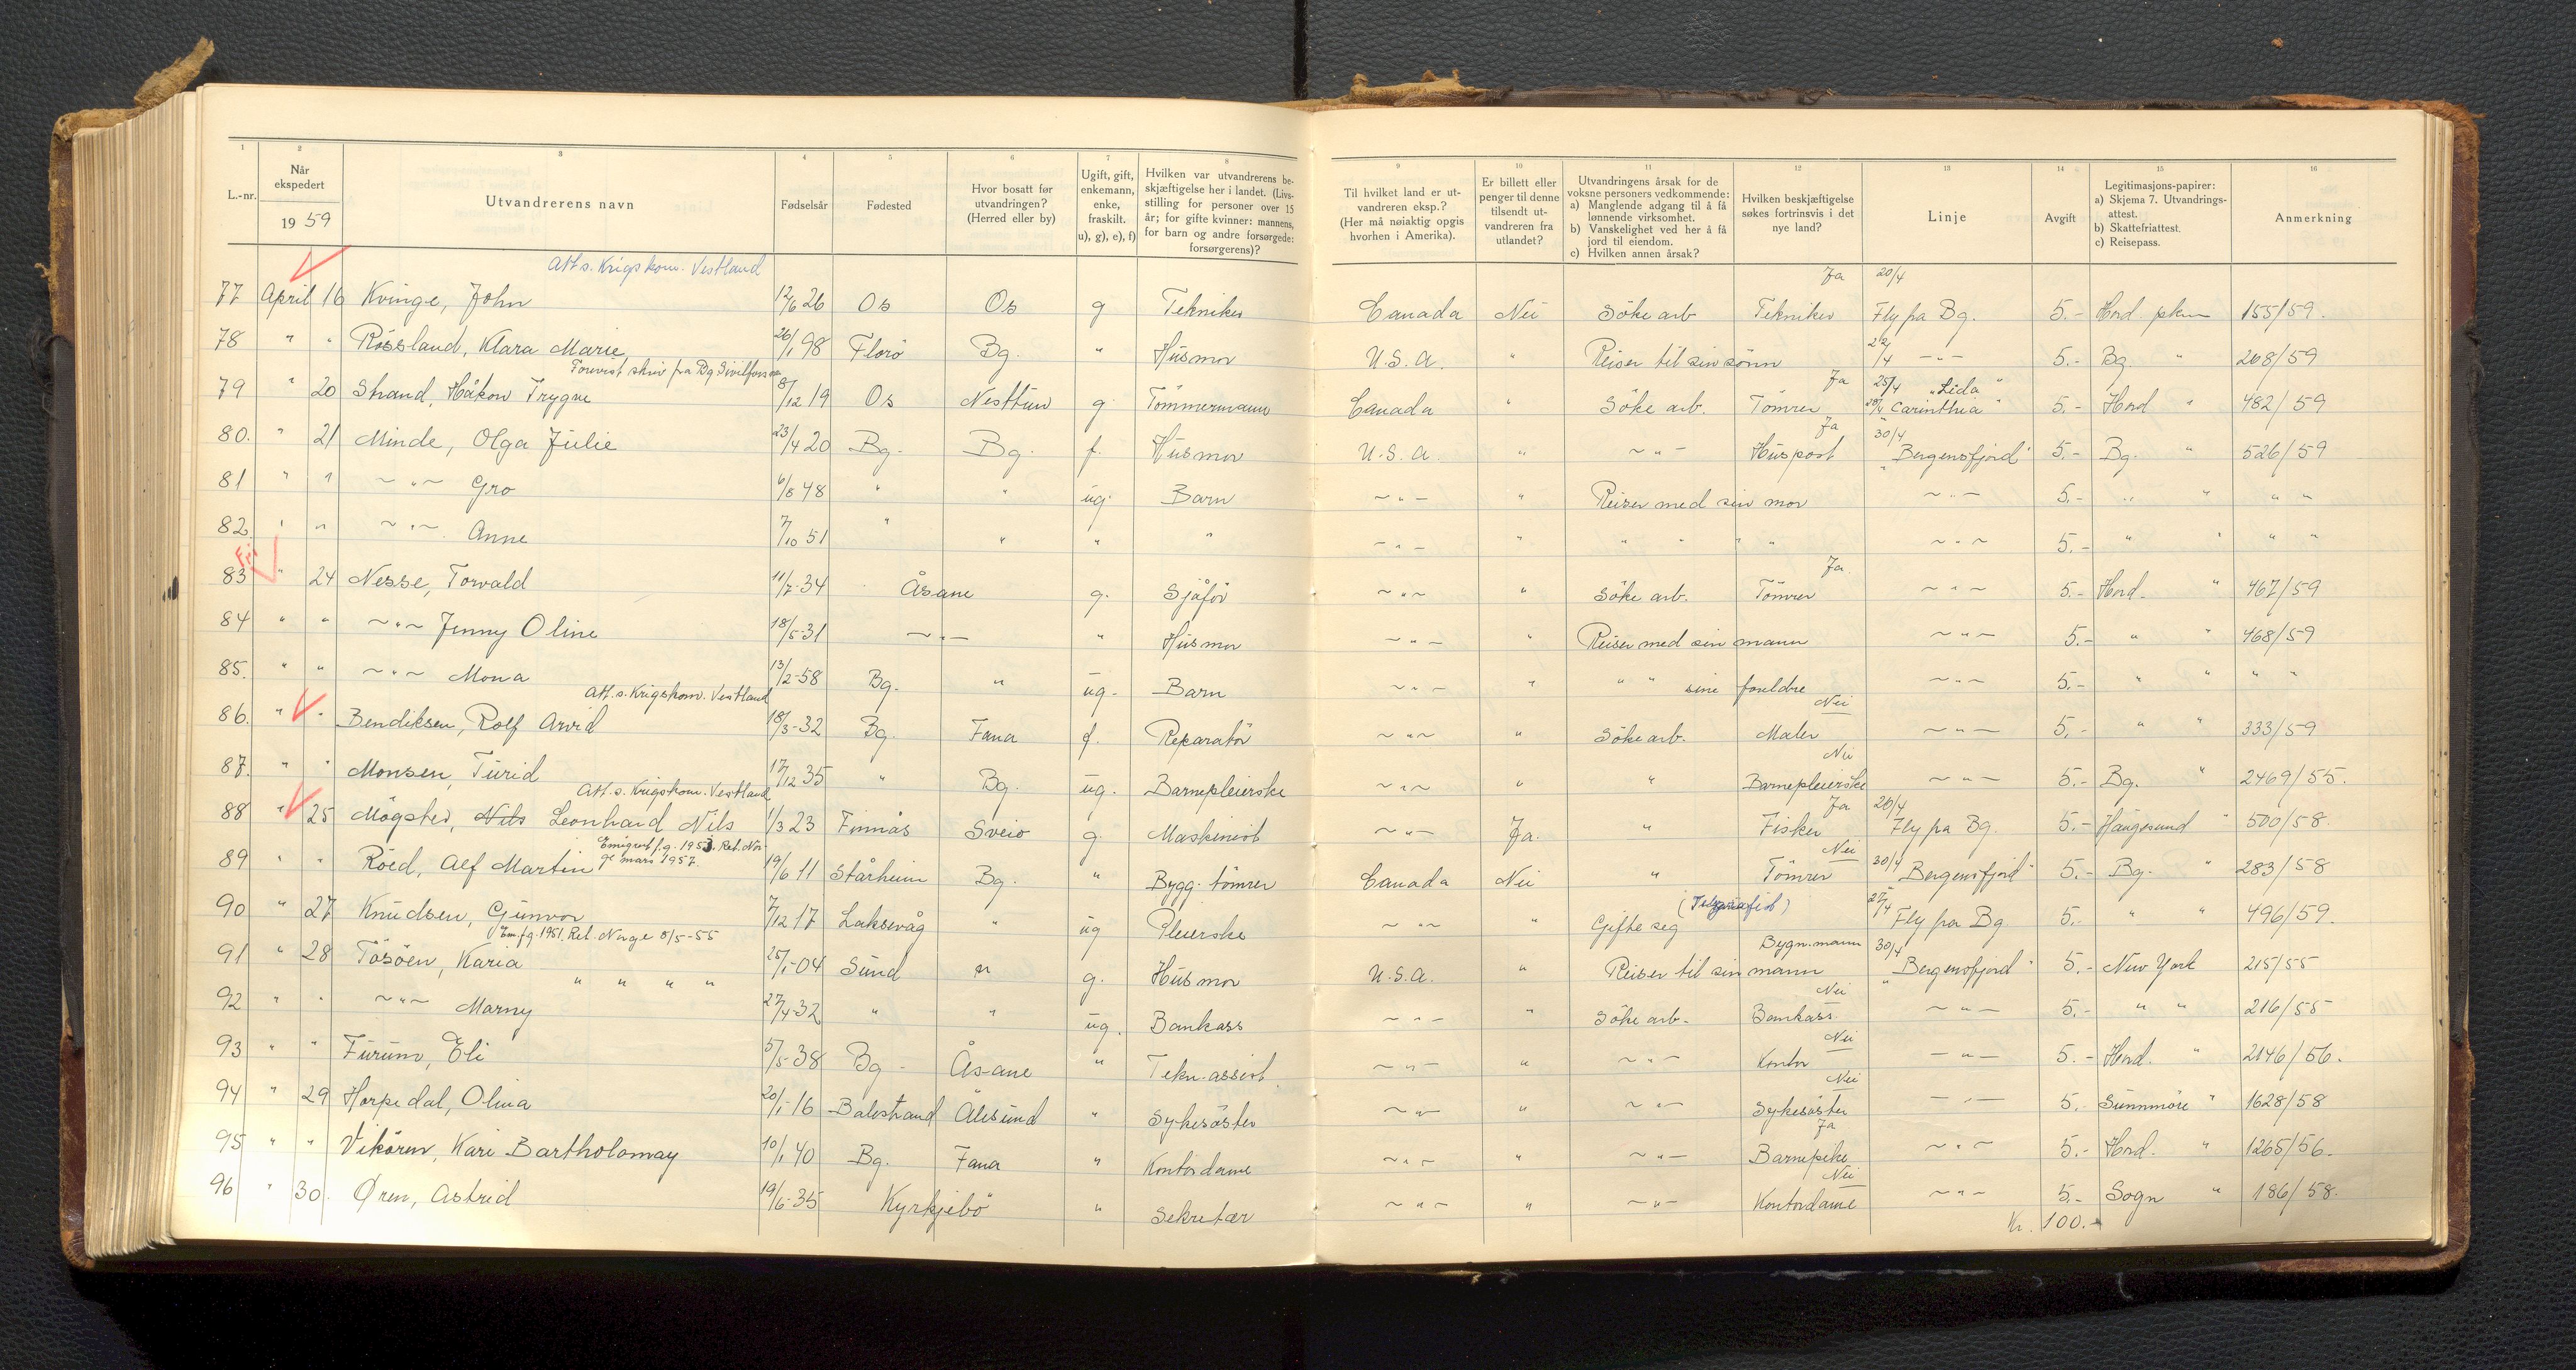 1 2 3 4 5 6 7 8 9 10 11 12 13 14 15 16
L.-nr.
Når ekspedert
19 59
Utvandrerens navn
Fødselsår
Fødested
Hvor bosatt før utvandringen? (Herred eller by)
Ugift, gift, enkemann, enke, fraskilt. u), g), e), f)
Hvilken var utvandrerens beskjæftigelse her i landet. (Livsstilling for personer over 15 år; for gifte kvinner: mannens, for barn og andre forsørgede: forsørgerens)?
Til hvilket land er utvandreren eksp.? (Her må nøiaktig opgis hvorhen i Amerika).
Er billett eller penger til denne tilsendt utvandreren fra utlandet?
Utvandringens årsak for de voksne personers vedkommende:
a) Manglende adgang til å få lønnende virksomhet.
b) Vanskelighet ved her å få jord til eiendom.
c) Hvilken annen årsak?
Hvilken beskjæftigelse søkes fortrinsvis i det nye land?
Linje
Avgift
Legitimasjons-papirer:
a) Skjema 7. Utvandringsattest.
b) Skattefriattest.
c) Reisepass.
Anmerkning
Att. s. Krigskom. Vestland Ja 20/4
77 April 16 Kvinge, John 12/6 26 Os Os g Tekniker Canada Nei Söke arb Tekniker Fly fra Bg. 5.- Hord. pkm 155/59.
78 " " Røssland, Klara Marie 26/1 98 Florö Bg. " Husmor U.S.A. " Reiser til sin sönn 22/4 ~"~ 5.- Bg. " 268/59
Ja 25/4 "Lida"
79 " 20 Strand, Håkon Trygve 8/12 19 Os Nesttun g Tömmermann Canada " Söke arb. Tömrer 28/4 Carinthia" 5.- Hord " 482/59
Ja 30/4
80. " 21 Minde, Olga Julie 23/4 20 Bg. Bg. f. Husmor U.S.A. " ~"~ Huspost "Bergensfjord" 5.- Bg. " 526/59
81 " " ~"~ Gro 6/8 48 " " ug. Barn ~"~ " Reiser med sin mor ~"~ 5.- " " " "
82 " " ~"~ Anne 7/10 51 " " " " ~"~ " " " " " ~"~ 5.- " " " "
Fri Ja.
83 " 24 Nesse, Torvald 11/7-34 Åsane g. Sjåför ~"~ " Söke arb. Tömrer ~"~ 5.- Hord. " 467/59
84 " " ~"~ Jenny Oline 18/5-31 ~"~ " Husmor ~"~ " Reiser med sin mann ~"~ 5.- " " 468/59
85. " " ~"~ Mona 13/2-58 Bg. " ug. Barn ~"~ " " " sine foreldre ~"~ 5.- " " " "
Att. s. Krigskom. Vestland Nei
86. " " Bendiksen, Rolf Arvid 18/3-32 Bg. Fana f. Reparatör ~"~ " Söke arb. Maler ~"~ 5.- " " 333/59
Nei
87. " " Monsen, Turid 17/12 35 " Bg. ug. Barnepleierske ~"~ " " Barnepleierske ~"~ 5.- Bg. " 2469/55.
Att. s. Krigskom. Vestland Ja 26/4
88 " 25 Mögster, Nils Leonhard Nils 1/3 23 Finnås Sveio g. Maskinist ~"~ Ja. " Fisker Fly fra Bg. 5.- Haugesund " 500/58.
Emigrert f.g. 1953. Ret. Nor- Nei
ge mars 1957.
89 " " Röed, Alf Martin 19/6 11 Stårheim Bg. " Bygg. tömrer Canada Nei " Tömrer 30/4 "Bergensfjord" 5.- Bg. " 283/58
27/4
90 " 27 Knudsen, Gunvor 7/12 17 Laksevåg " ug Pleierske ~"~ " Gifte seg Fly fra Bg. 5.- " " 496/59.
Em. f.g. 1951. Ret. Norge 8/5-55 Bygn. mann 30/4
91 " 28 Tösöen, Karia 25/1-04 Sund " g. Husmor U.S.A. " Reiser til sin mann "Bergensfjord" 5.- New York 215/55
" " " " Nei
92 " " ~"~ Marny 27/4-32 " " ug. Bankass ~"~ " Söke arb. Bankass. ~"~ 5.- " " 216/55
Nei
93 " " Furuno, Eli 5/5-38 Bg. Åsane " Tekn. assist. ~"~ " ~"~ Kontor ~"~ 5.- Hord. " 2146/56.
Nei
94 " 29 Horpedal, Olina 20/1-16 Balestrand Ålesund " Sykesöster ~"~ " ~"~ Sykesöster ~"~ 5.- Sunnmöre " 1628/58
Ja
95 " " Vikören, Kari Bartholomay 10/1 40 Bg. Fana " Kontordame ~"~ " ~"~ Barnepike ~"~ 5.- Hord. " 1265/56.
Nei
96 " 30. Øren, Astrid 19/6-35 Kyrkjebö " Sekretær ~"~ " ~"~ Kontordame ~"~ 5.- Sogn " 186/58.
Kr. 100.-